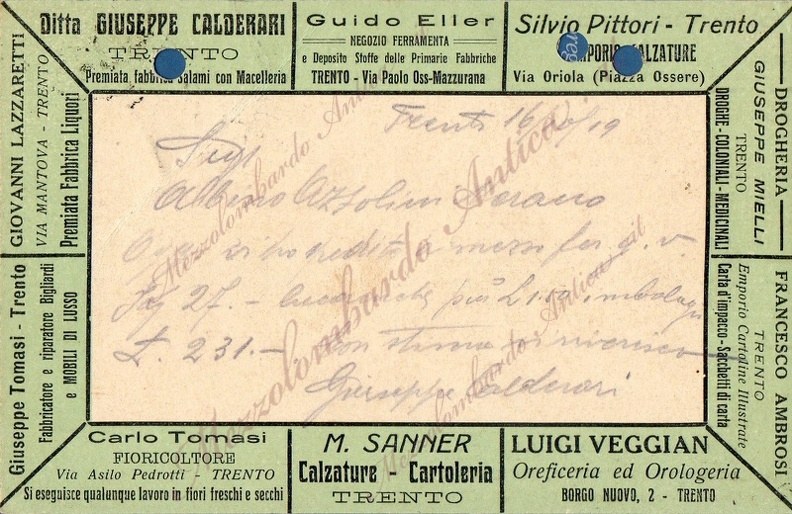 Ditta GIUSEPPE CALDERARI
TRENTO
Premiata fabbrica Salami con Macelleria
Guido Eller
NEGOZIO FERRAMENTA
e Deposito Stoffe delle Primarie Fabbriche
TRENTO - Via Paolo Oss-Mazzurana
Silvio Pittori - Trento
EMPORIO CALZATURE
Via Oriola (Piazza Ossere)
GIOVANNI LAZZARETTI
VIA MANTOVA - TRENTO
Premiata Fabbrica Liquori
DROGHERIA
GIUSEPPE MIELLI
TRENTO
DROGHE - COLONIALI - MEDICINALI
Trento 16/10/19
Albino Azzolini
27.-
£. 231.- con stima
Giuseppe Calderari
Mezzolombardo Antica
Mezzolombardo Antica
Mezzolombardo Antica.it
Giuseppe Tomasi - Trento
Fabbricatore e riparatore Bigliardi
e MOBILI DI LUSSO
FRANCESCO AMBROSI
TRENTO
Emporio Cartoline Illustrate
Carta d'impacco - Sacchetti di carta
Carlo Tomasi
FIORICOLTORE
Via Asilo Pedrotti - TRENTO
Si eseguisce qualunque lavoro in fiori freschi e secchi
M. SANNER
Calzature - Cartoleria
TRENTO
LUIGI VEGGIAN
Oreficeria ed Orologeria
BORGO NUOVO, 2 - TRENTO